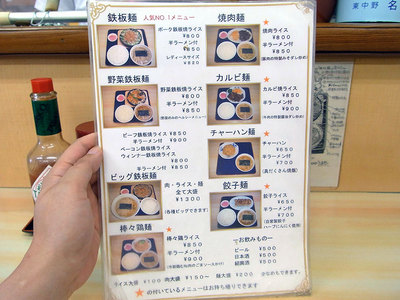 東中野 名
鉄板麺 人気NO.1メニュー
ポーク鉄板焼ライス
¥800
半ラーメン付
¥850
レディースサイズ
¥820
野菜鉄板麺
野菜鉄板焼ライス
¥800
半ラーメン付
¥850
ビーフ鉄板焼ライス ¥850
半ラーメン付 ¥900
ベーコン鉄板焼ライス
ウィンナー鉄板焼ライス
¥800
¥850
ビッグ鉄板麺
肉・ライス・麺
全て大盛
¥1300
棒々鶏麺
棒々鶏ライス
¥850
半ラーメン付
¥900
焼肉麺
焼肉ライス
¥800
半ラーメン付
¥850
カルビ麺
カルビ焼ライス
¥850
半ラーメン付
¥900
チャーハン麺
チャーハン
¥650
半ラーメン付
¥700
餃子麺
餃子ライス
¥650
半ラーメン付
¥700
お飲みもの
ビール ¥500
日本酒 ¥500
紹興酒 ¥500
ライス大盛 ¥100 肉大盛 ¥150〜 麺大盛 ¥200
★の付いているメニューはお持ち帰りできます